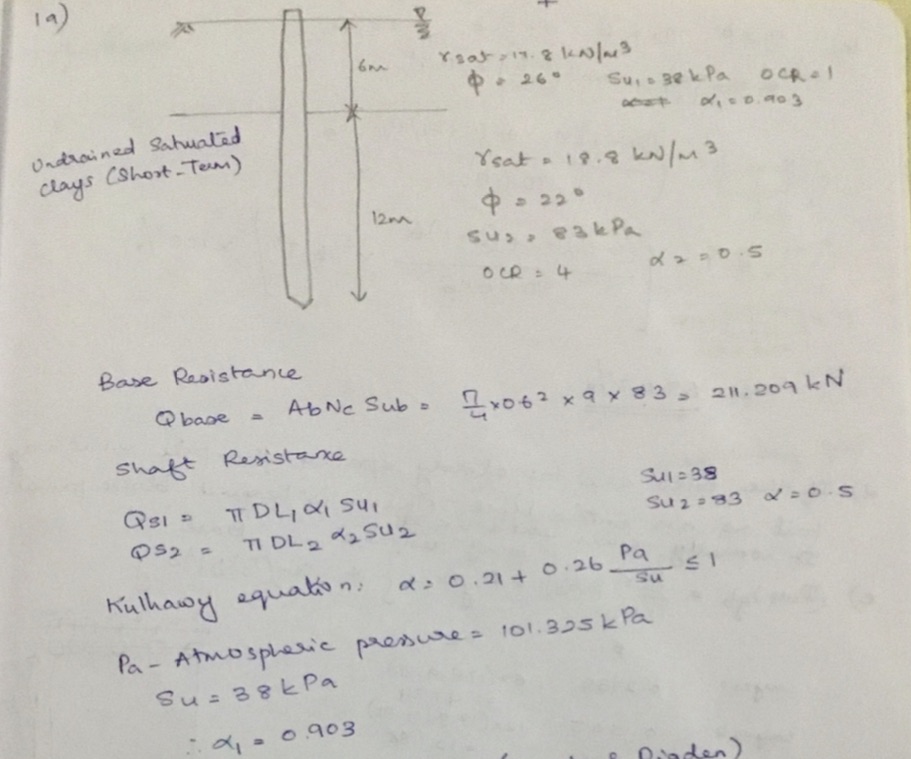 1a)
6m
γsat = 17.8 kN/m³
ϕ = 26° Su₁ = 38 kPa OCR = 1
α₁ = 0.903
Undrained Saturated
clays (Short-Term)
12m
γsat = 18.8 kN/m³
ϕ = 22°
Su₂ = 83 kPa
OCR = 4 α₂ = 0.5
Base Resistance
Qbase = AbNc Sub = π/4 x 0.6² x 9 x 83 = 211.209 kN
Shaft Resistance
Su1 = 38
Su2 = 83 α = 0.5
Qs1 = πDL₁α₁Su₁
Qs2 = πDL₂α₂Su₂
Kulhawy equation: α = 0.21 + 0.26 Pa/Su ≤ 1
Pa - Atmospheric pressure = 101.325 kPa
Su = 38 kPa
∴ α₁ = 0.903